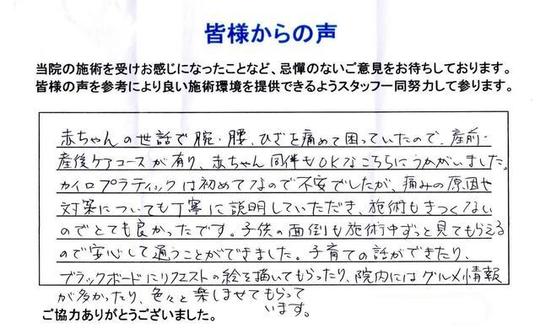 皆様からの声
当院の施術を受けお感じになったことなど、忌憚のないご意見をお待ちしております。
皆様の声を参考により良い施術環境を提供できるようスタッフ一同努力して参ります。
赤ちゃんの世話で腕・腰、ひざを痛めて困っていたので、産前・
産後ケアコースが有り、赤ちゃん同伴もOKなこちらにうかがいました。
カイロプラティックは初めてなので不安でしたが、痛みの原因や
対策についても丁寧に説明していただき、施術もきつくない
のでとても良かったです。子供の面倒も施術中ずっと見てもらえる
ので安心して通うことができました。子育ての話ができたり、
ブラックボードにリクエストの絵を描いてもらったり、院内にはグルメ情報
が多かったり、色々と楽しませてもらって
います。
ご協力ありがとうございました。